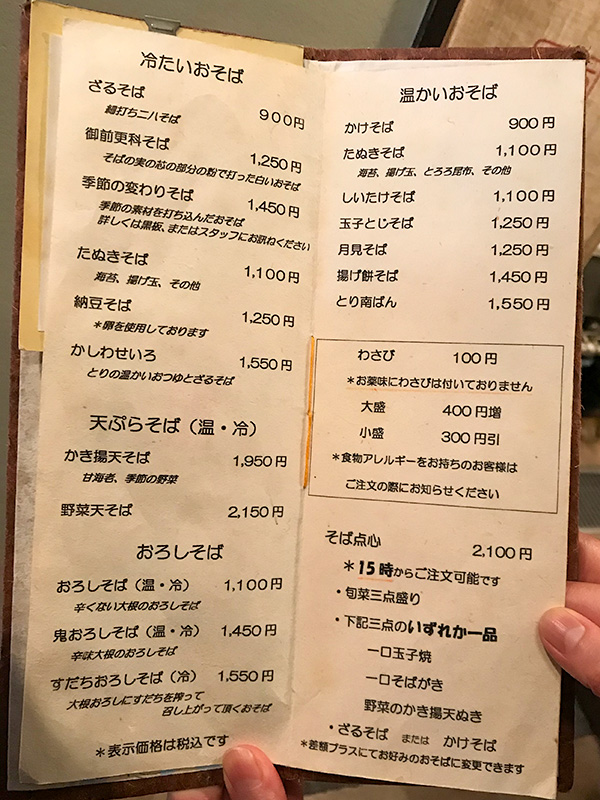 冷たいおそば
ざるそば 900円
細打ち二八そば
御前更科そば 1,250円
そばの実の芯の部分の粉で打った白いおそば
季節の変わりそば 1,450円
季節の素材を打ち込んだおそば
詳しくは黒板、またはスタッフにお訊ねください
たぬきそば 1,100円
海苔、揚げ玉、その他
納豆そば 1,250円
*卵を使用しております
かしわせいろ 1,550円
とりの温かいおつゆとざるそば
天ぷらそば（温・冷）
かき揚天そば 1,950円
甘海老、季節の野菜
野菜天そば 2,150円
おろしそば
おろしそば（温・冷） 1,100円
辛くない大根のおろしそば
鬼おろしそば（温・冷） 1,450円
辛味大根のおろしそば
すだちおろしそば（冷） 1,550円
大根おろしにすだちを搾って
召し上がって頂くおそば
*表示価格は税込です
温かいおそば
かけそば 900円
たぬきそば 1,100円
海苔、揚げ玉、とろろ昆布、その他
しいたけそば 1,100円
玉子とじそば 1,250円
月見そば 1,250円
揚げ餅そば 1,450円
とり南ばん 1,550円
わさび 100円
*お薬味にわさびは付いておりません
大盛 400円増
小盛 300円引
*食物アレルギーをお持ちのお客様は
ご注文の際にお知らせください
そば点心 2,100円
*15時からご注文可能です
・旬菜三点盛り
・下記三点のいずれか一品
一口玉子焼
一口そばがき
野菜のかき揚天ぬき
・ざるそば または かけそば
*差額プラスにてお好みのおそばに変更できます